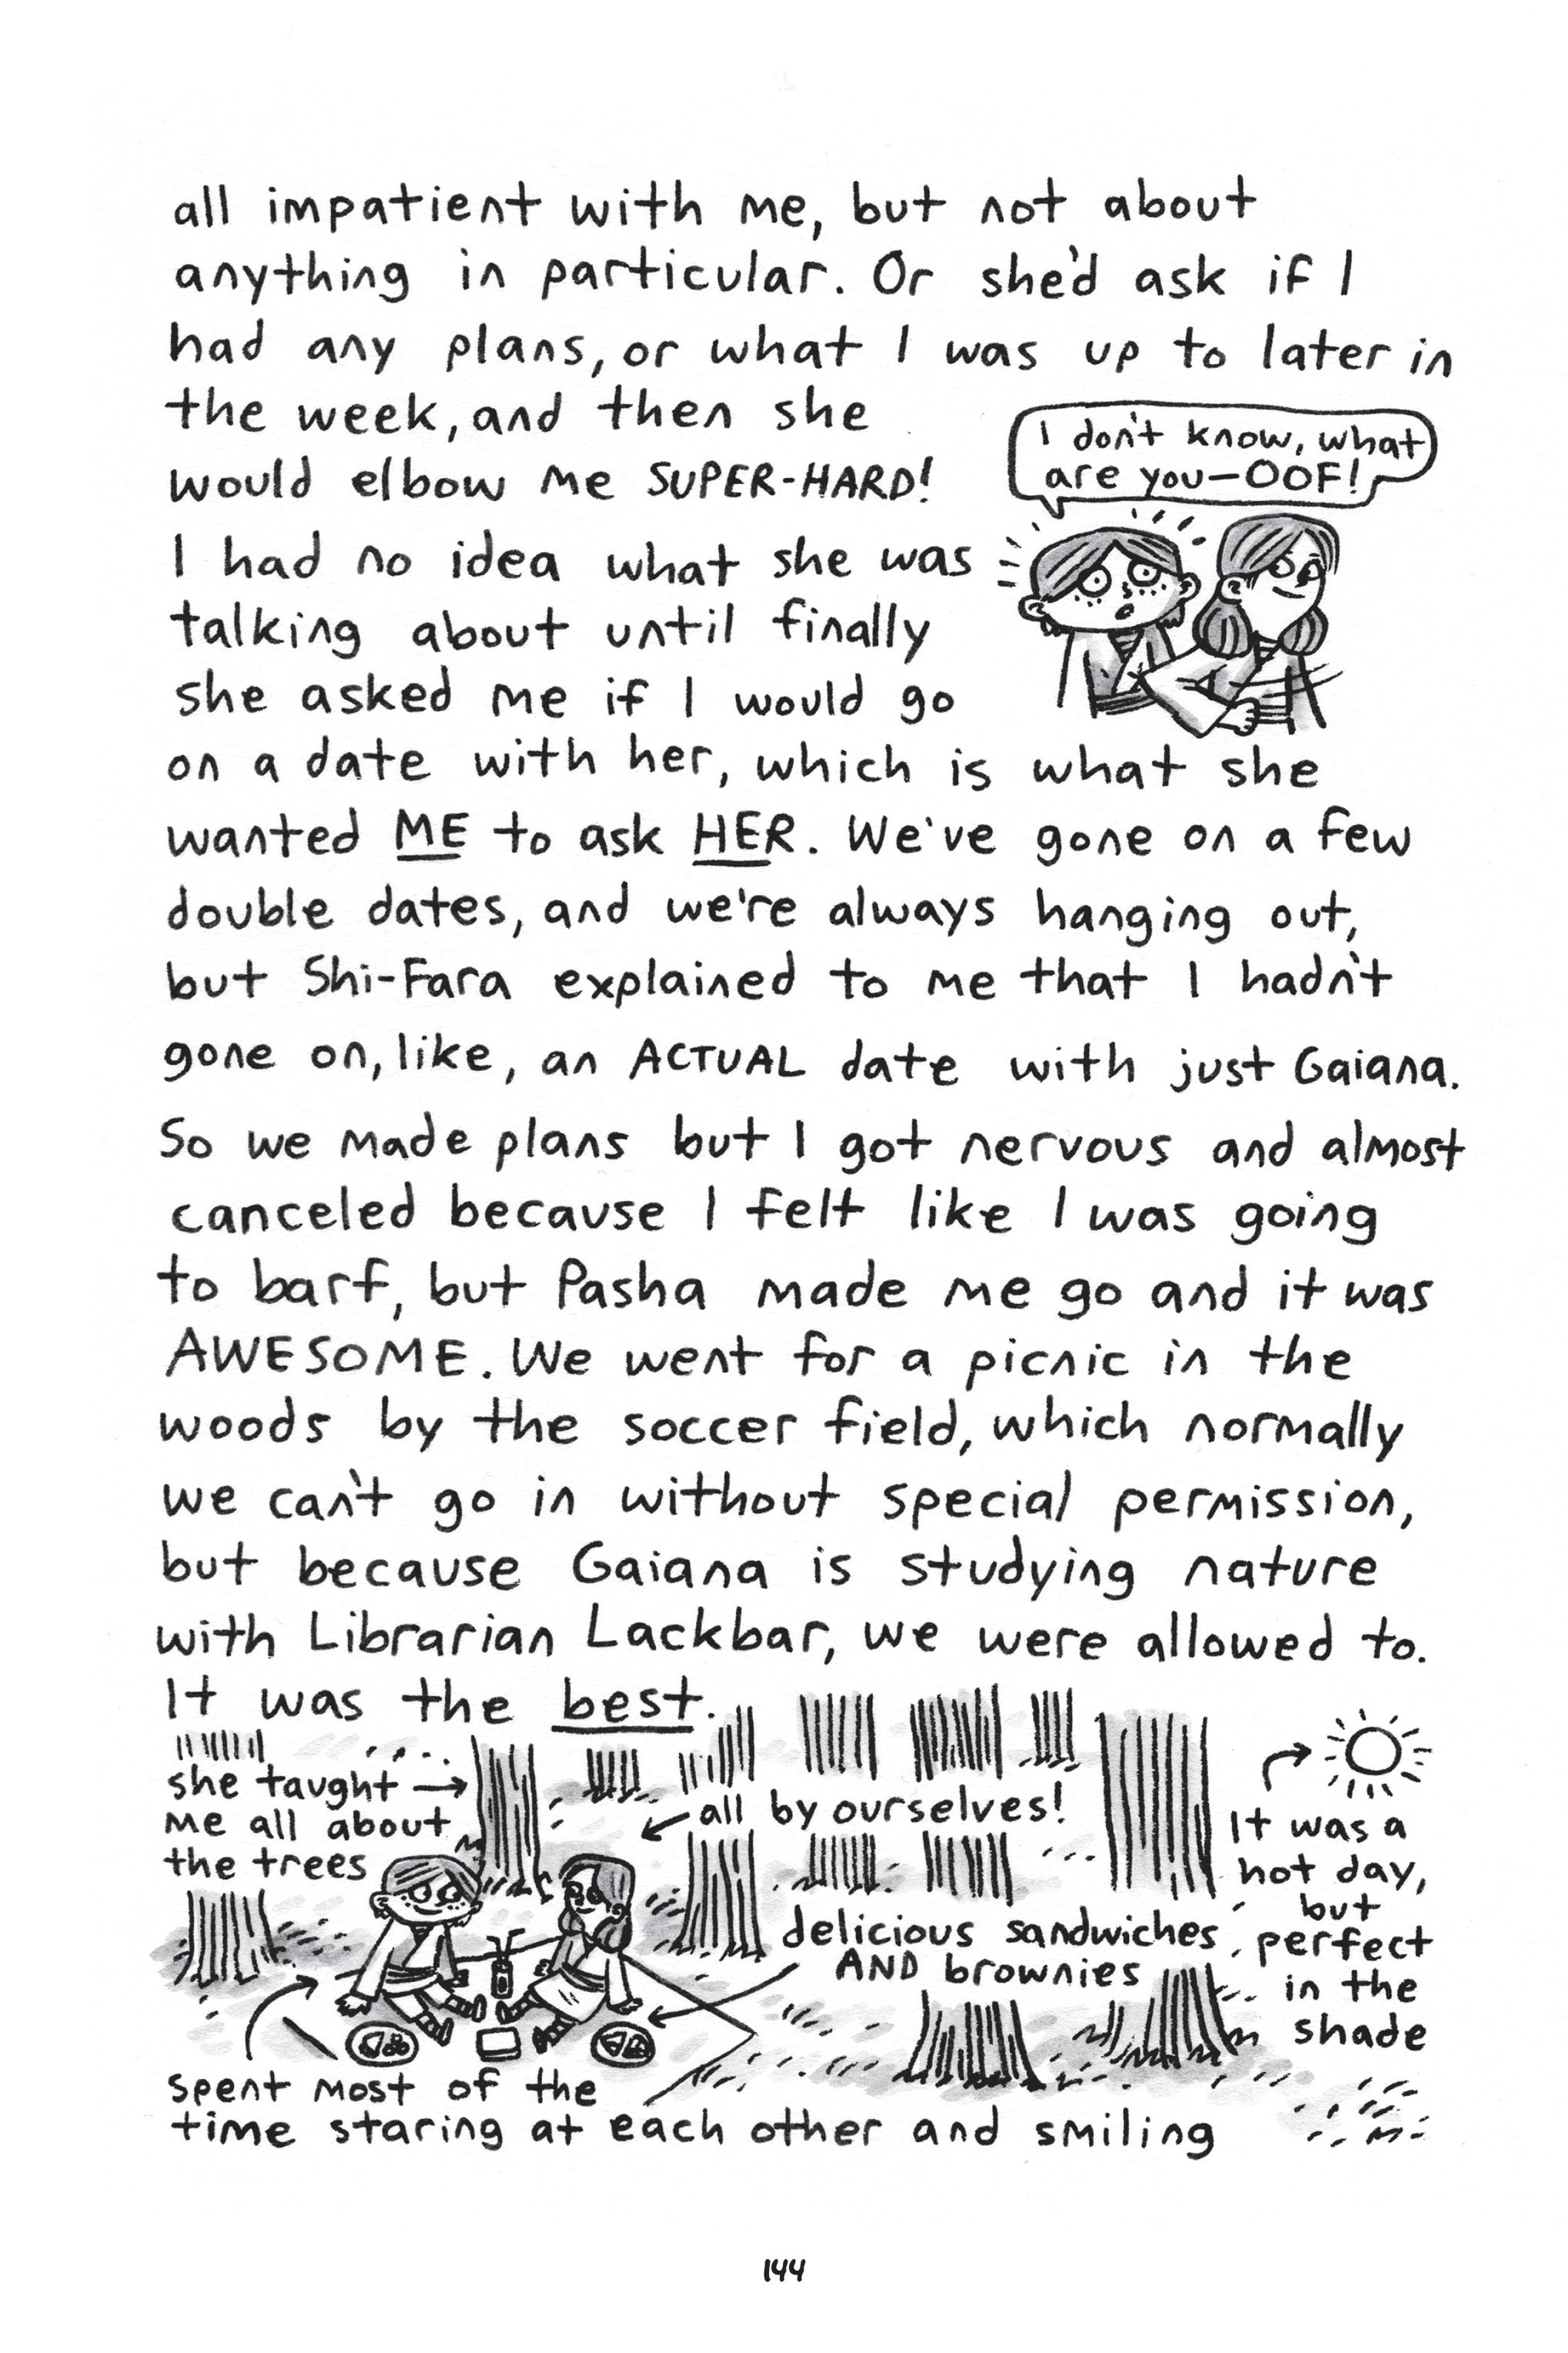 all impatient with me, but not about
anything in particular. Or she'd ask if I
had any plans, or what I was up to later in
the week, and then she
would elbow me SUPER-HARD!
I don't know, what
are you—OOF!
I had no idea what she was
talking about until finally
she asked me if I would go
on a date with her, which is what she
wanted ME to ask HER. We've gone on a few
double dates, and we're always hanging out,
but Shi-Fara explained to me that I hadn't
gone on, like, an ACTUAL date with just Gaiana.
So we made plans but I got nervous and almost
canceled because I felt like I was going
to barf, but Pasha made me go and it was
AWESOME. We went for a picnic in the
woods by the soccer field, which normally
we can't go in without special permission,
but because Gaiana is studying nature
with Librarian Lackbar, we were allowed to.
It was the best.
she taught
me all about
the trees
all by ourselves!
It was a
hot day,
but
perfect
in the
shade
delicious sandwiches
AND brownies
spent most of the
time staring at each other and smiling
144